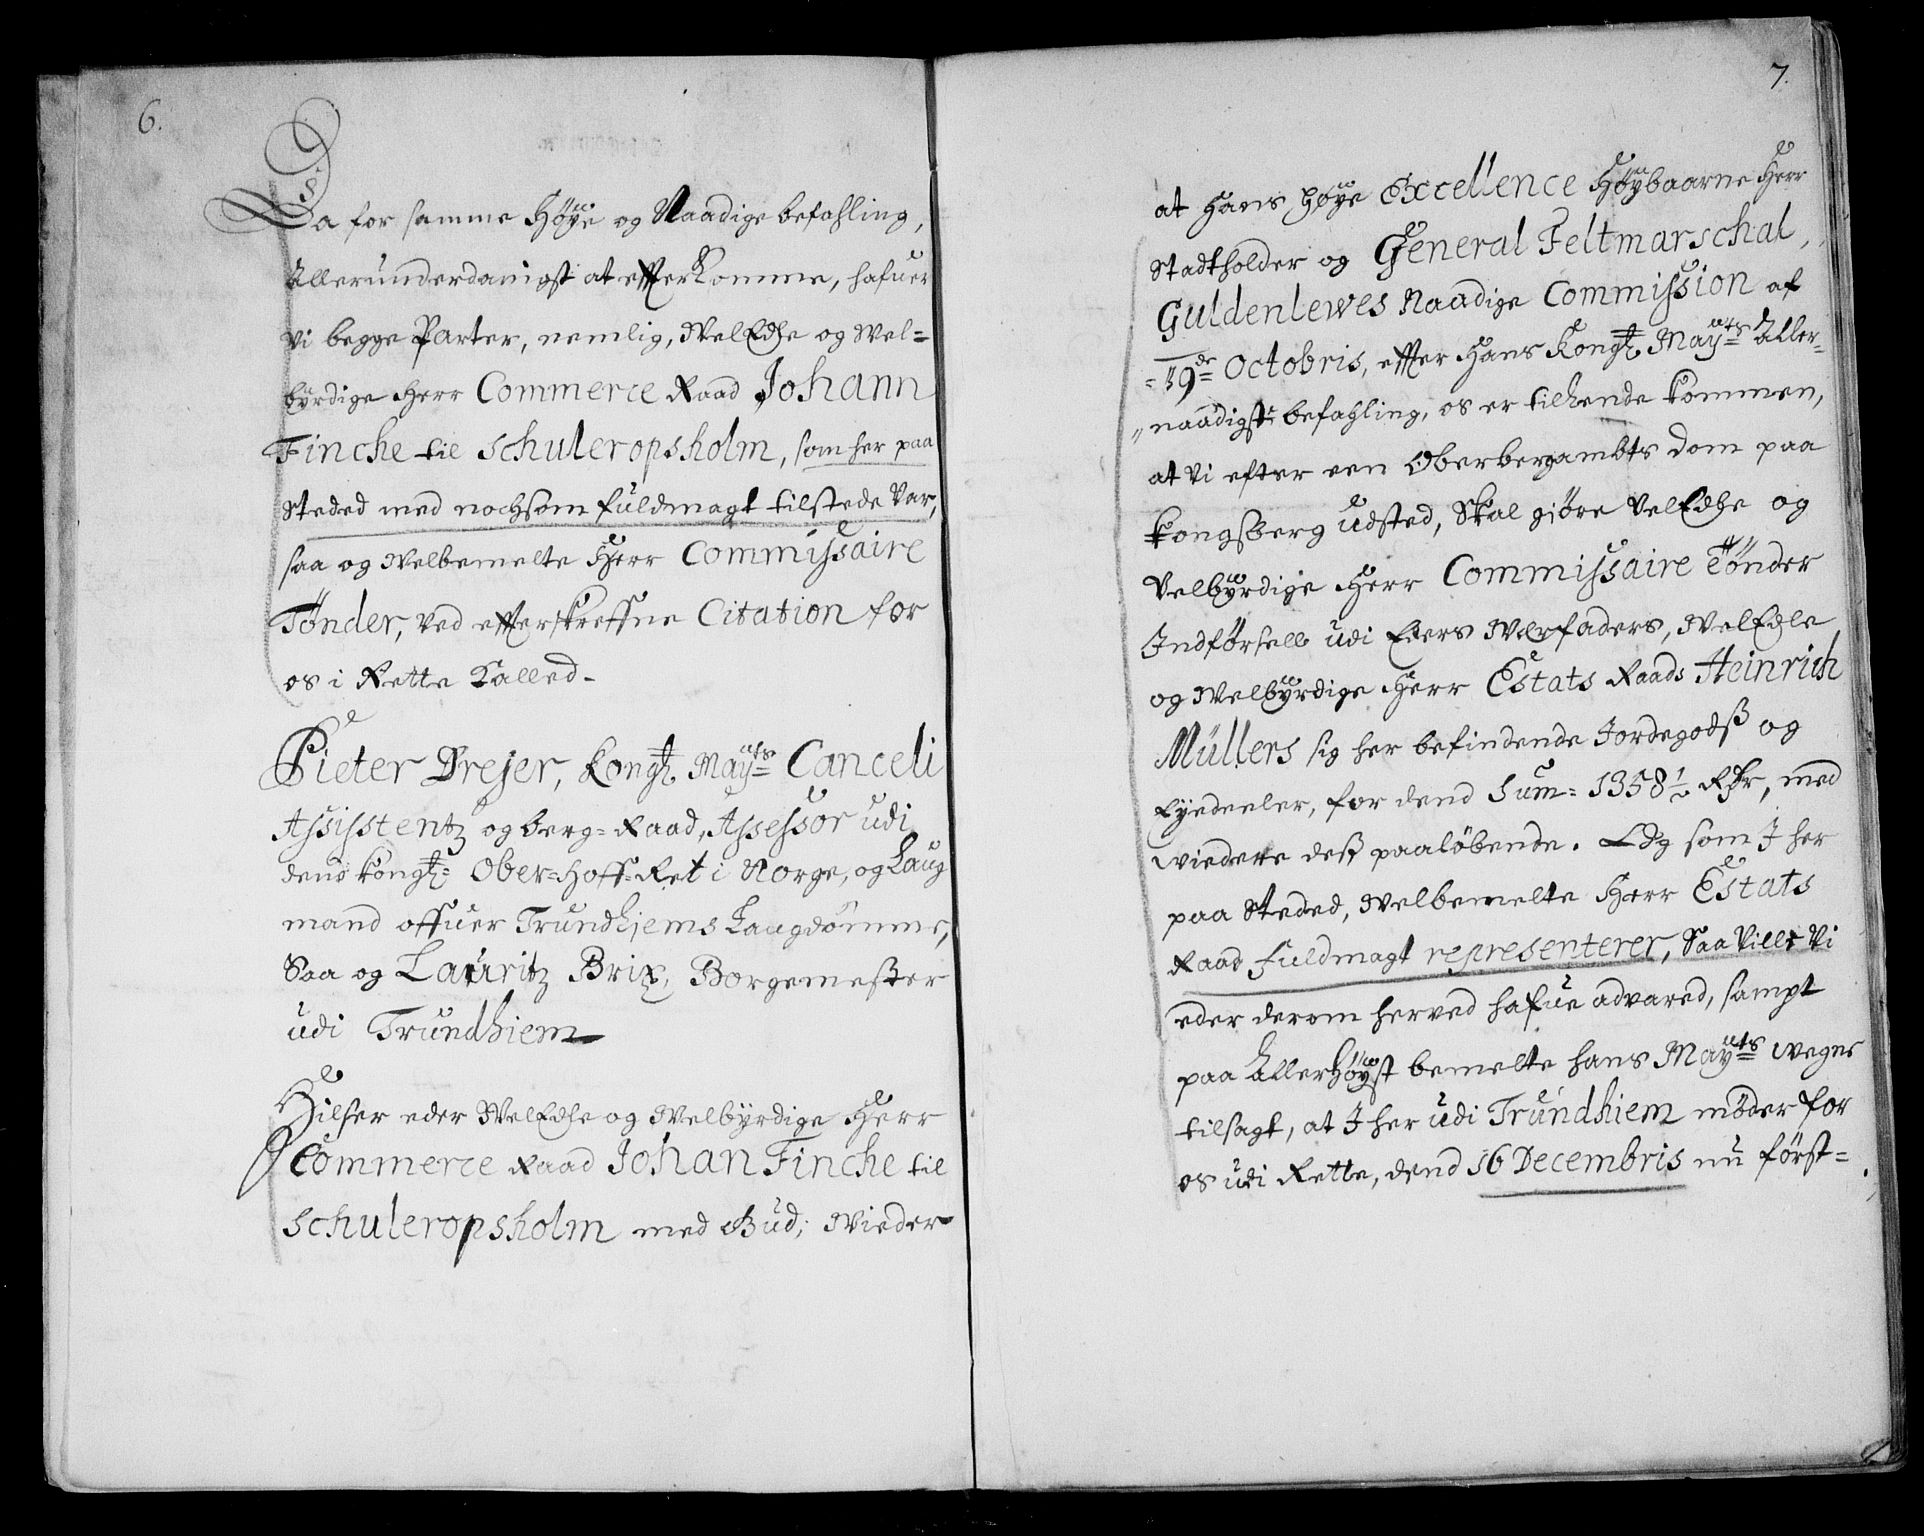 6.
Da for samme Høye og Naadige befahling,
Allerunderdanigst at effterkomme, hafuer
Vi begge Parter, nemlig, WelEdle og Wel=
byrdige Herr Commerce Raad Johann
Finche til Schuleropsholm, som her paa
Steded med nochsom fuldmagt tilstede Var,
saa og Welbemelte Herr Commissaire
Tönder, Ved effterskreffne Citation for
os i Rette Kalled-
Pieter Drejer, Kongl. Mayts Canceli
Assistentz og berg=Raad, Assessor udi
dend kongl= Ober=Hoff=Ret i Norge, og Laug
mand offuer Trundhjems Laugdömme,
Saa og Lauritz Brix, Borgemester
udi Trundhiem
Hilser eder WelEdle og Welbyrdige Herr
Commerce Raad Johan Finche til
Schuleropsholm med Gud; Wieder
7.
at Hans Høye Excellence Høybaarne Herr
Stadtholder og General Feltmarschal,
Guldenlewes Naadige Commission af
19de Octobris, effter Hans Kongl. Mayts Aller-
naadigste befahling, os er tilhende kommen,
at Vi efter een Oberbergambts Dom paa
Kongsberg udsted, Skal giöre VelEdle og
Velbyrdige Herr Commissaire Tönder
Indförsell udi Eders Werfaders, WelEdle
og Welbyrdige Herr Estats Raads Heinrich
Müllers sig her befindende Jordegodß og
Eyedeeler, for dend Sum= 1358½ Rdr, med
wiedere deß paalöbende. Och som I her
paa Steded, Welbemelte Herr Estats
Raad fuldmagt representerer, Saa Ville Vi
eder derom herved hafue advared, sampt
paa Allerhöyst bemelte hans Mayts wegne
tilsagt, at I her udi Trundhiem möder for
os udi Rette, dend 16 Decembris nu först=